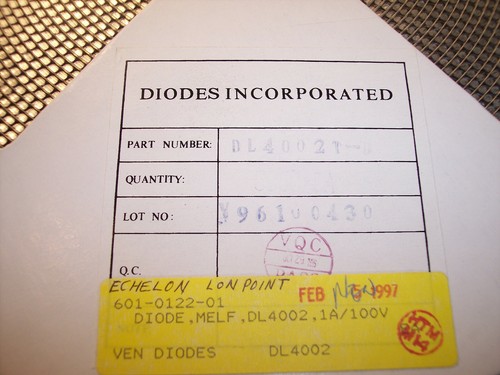 DIODES INCORPORATED
PART NUMBER: DL4002T-
QUANTITY:
LOT NO: Y96100430
VQC
Q.C.
ECHELON LONPOINT
FEB 5 1997
601-0122-01
DIODE,MELF,DL4002,1A/100V
VEN DIODES DL4002